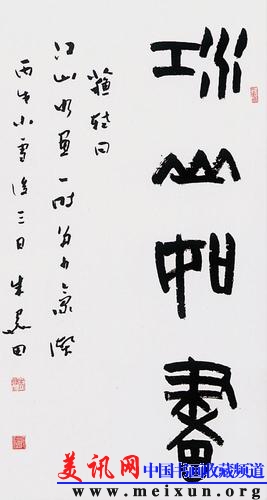 江山如畫
蘇軾曰
江山如畫一時多少豪傑
小雪後三日 朱關田
美讯网 中国书画收藏频道
www.meixun.org